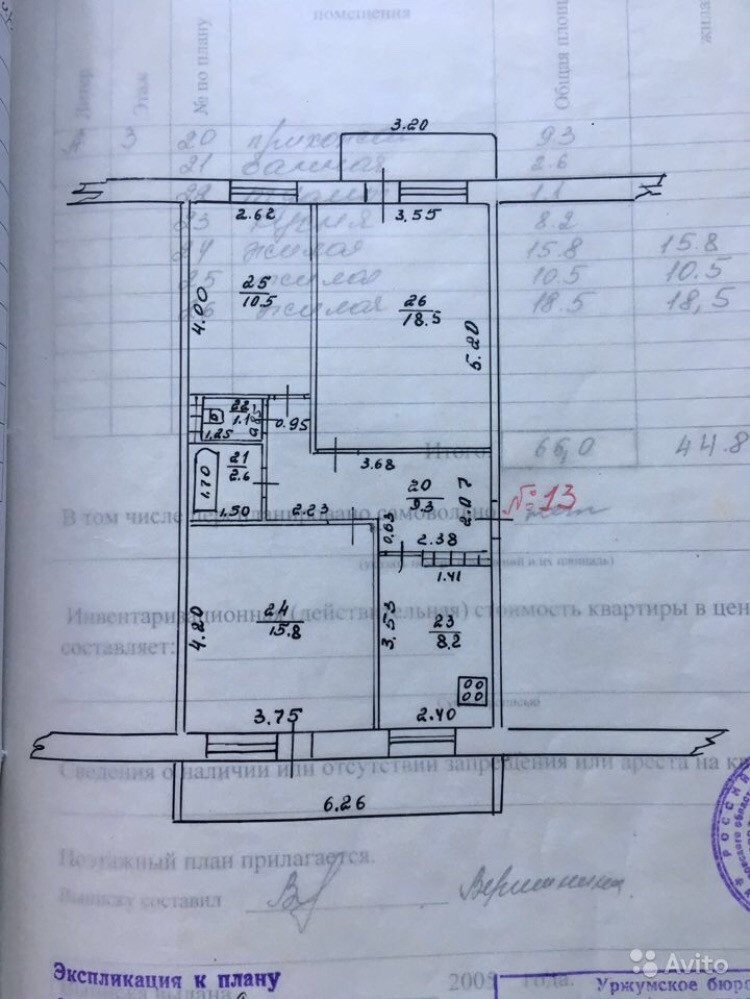 помещения
Литер
Этаж
№ по плану
Общая площ
жила
3.20
3 20 прихожая 9.3
21 ванная 2.6
22 туалет 1.1
23 кухня 8.2
24 жилая 15.8 15.8
25 жилая 10.5 10.5
26 жилая 18.5 18,5
2.62
3.55
25
10.5
26
18.5
4.00
5.20
22
1.1
0.85
1.25
0.95
Итого: 66,0 44.8
3.68
21
2.6
1.70
1.50
20
9.3
2.07
№13
2.23
В том числе перепланировано самовольно
0,63
2.38
1.41
Инвентаризационная (действительная) стоимость квартиры в цен
составляет:
24
15.8
4.20
3.53
23
8.2
3.75
2.40
Сведения о наличии или отсутствии запрещения или ареста на кв
6.26
РОССИЙ
Поэтажный план прилагается.
Выписку составил
Вершинина
Экспликация к плану
Выписка выдана
2005 года.
Уржумское бюр
Avito